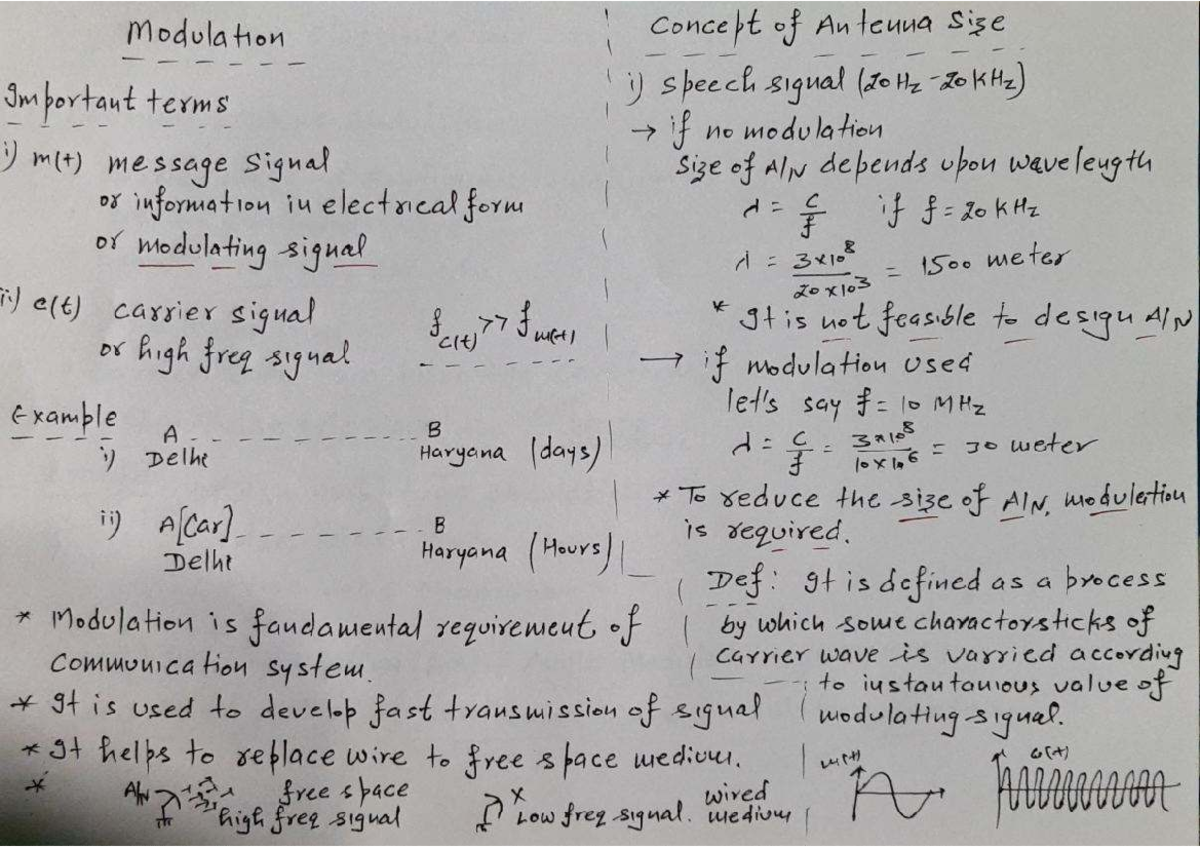 Modulation
Important terms
i) m(t) message signal
or information in electrical form
or modulating signal
ii) c(t) carrier signal
or high freq signal
f c(t) >> f m(t)
Example
i) A - - - - - - - - - - - - - - B
Delhi Haryana (days)
ii) A[Car] - - - - - - - - - - B
Delhi Haryana (Hours)
* Modulation is fundamental requirement of
communication system.
* It is used to develop fast transmission of signal
* It helps to replace wire to free space medium.
* A/N free space
high freq signal
x wired
Low freq signal. medium
Concept of Antenna Size
i) speech signal (20 Hz - 20 kHz)
→ if no modulation
Size of A/N depends upon wavelength
λ = c/f if f = 20 kHz
λ = 3×10⁸/20×10³ = 1500 meter
* It is not feasible to design A/N
→ if modulation used
let's say f = 10 MHz
λ = c/f = 3×10⁸/10×10⁶ = 30 meter
* To reduce the size of A/N, modulation
is required.
Def: It is defined as a process
by which some charactorsticks of
carrier wave is varried according
to instantanious value of
modulating signal.
m(t)
c(t)